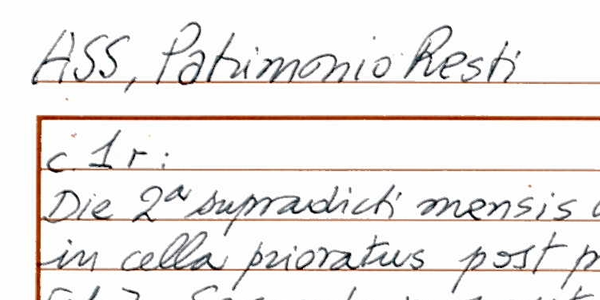 ASS, Patrimonio Resti
c. 1 r:
Die 2ª supradicti mensis
in cella prioratus post p